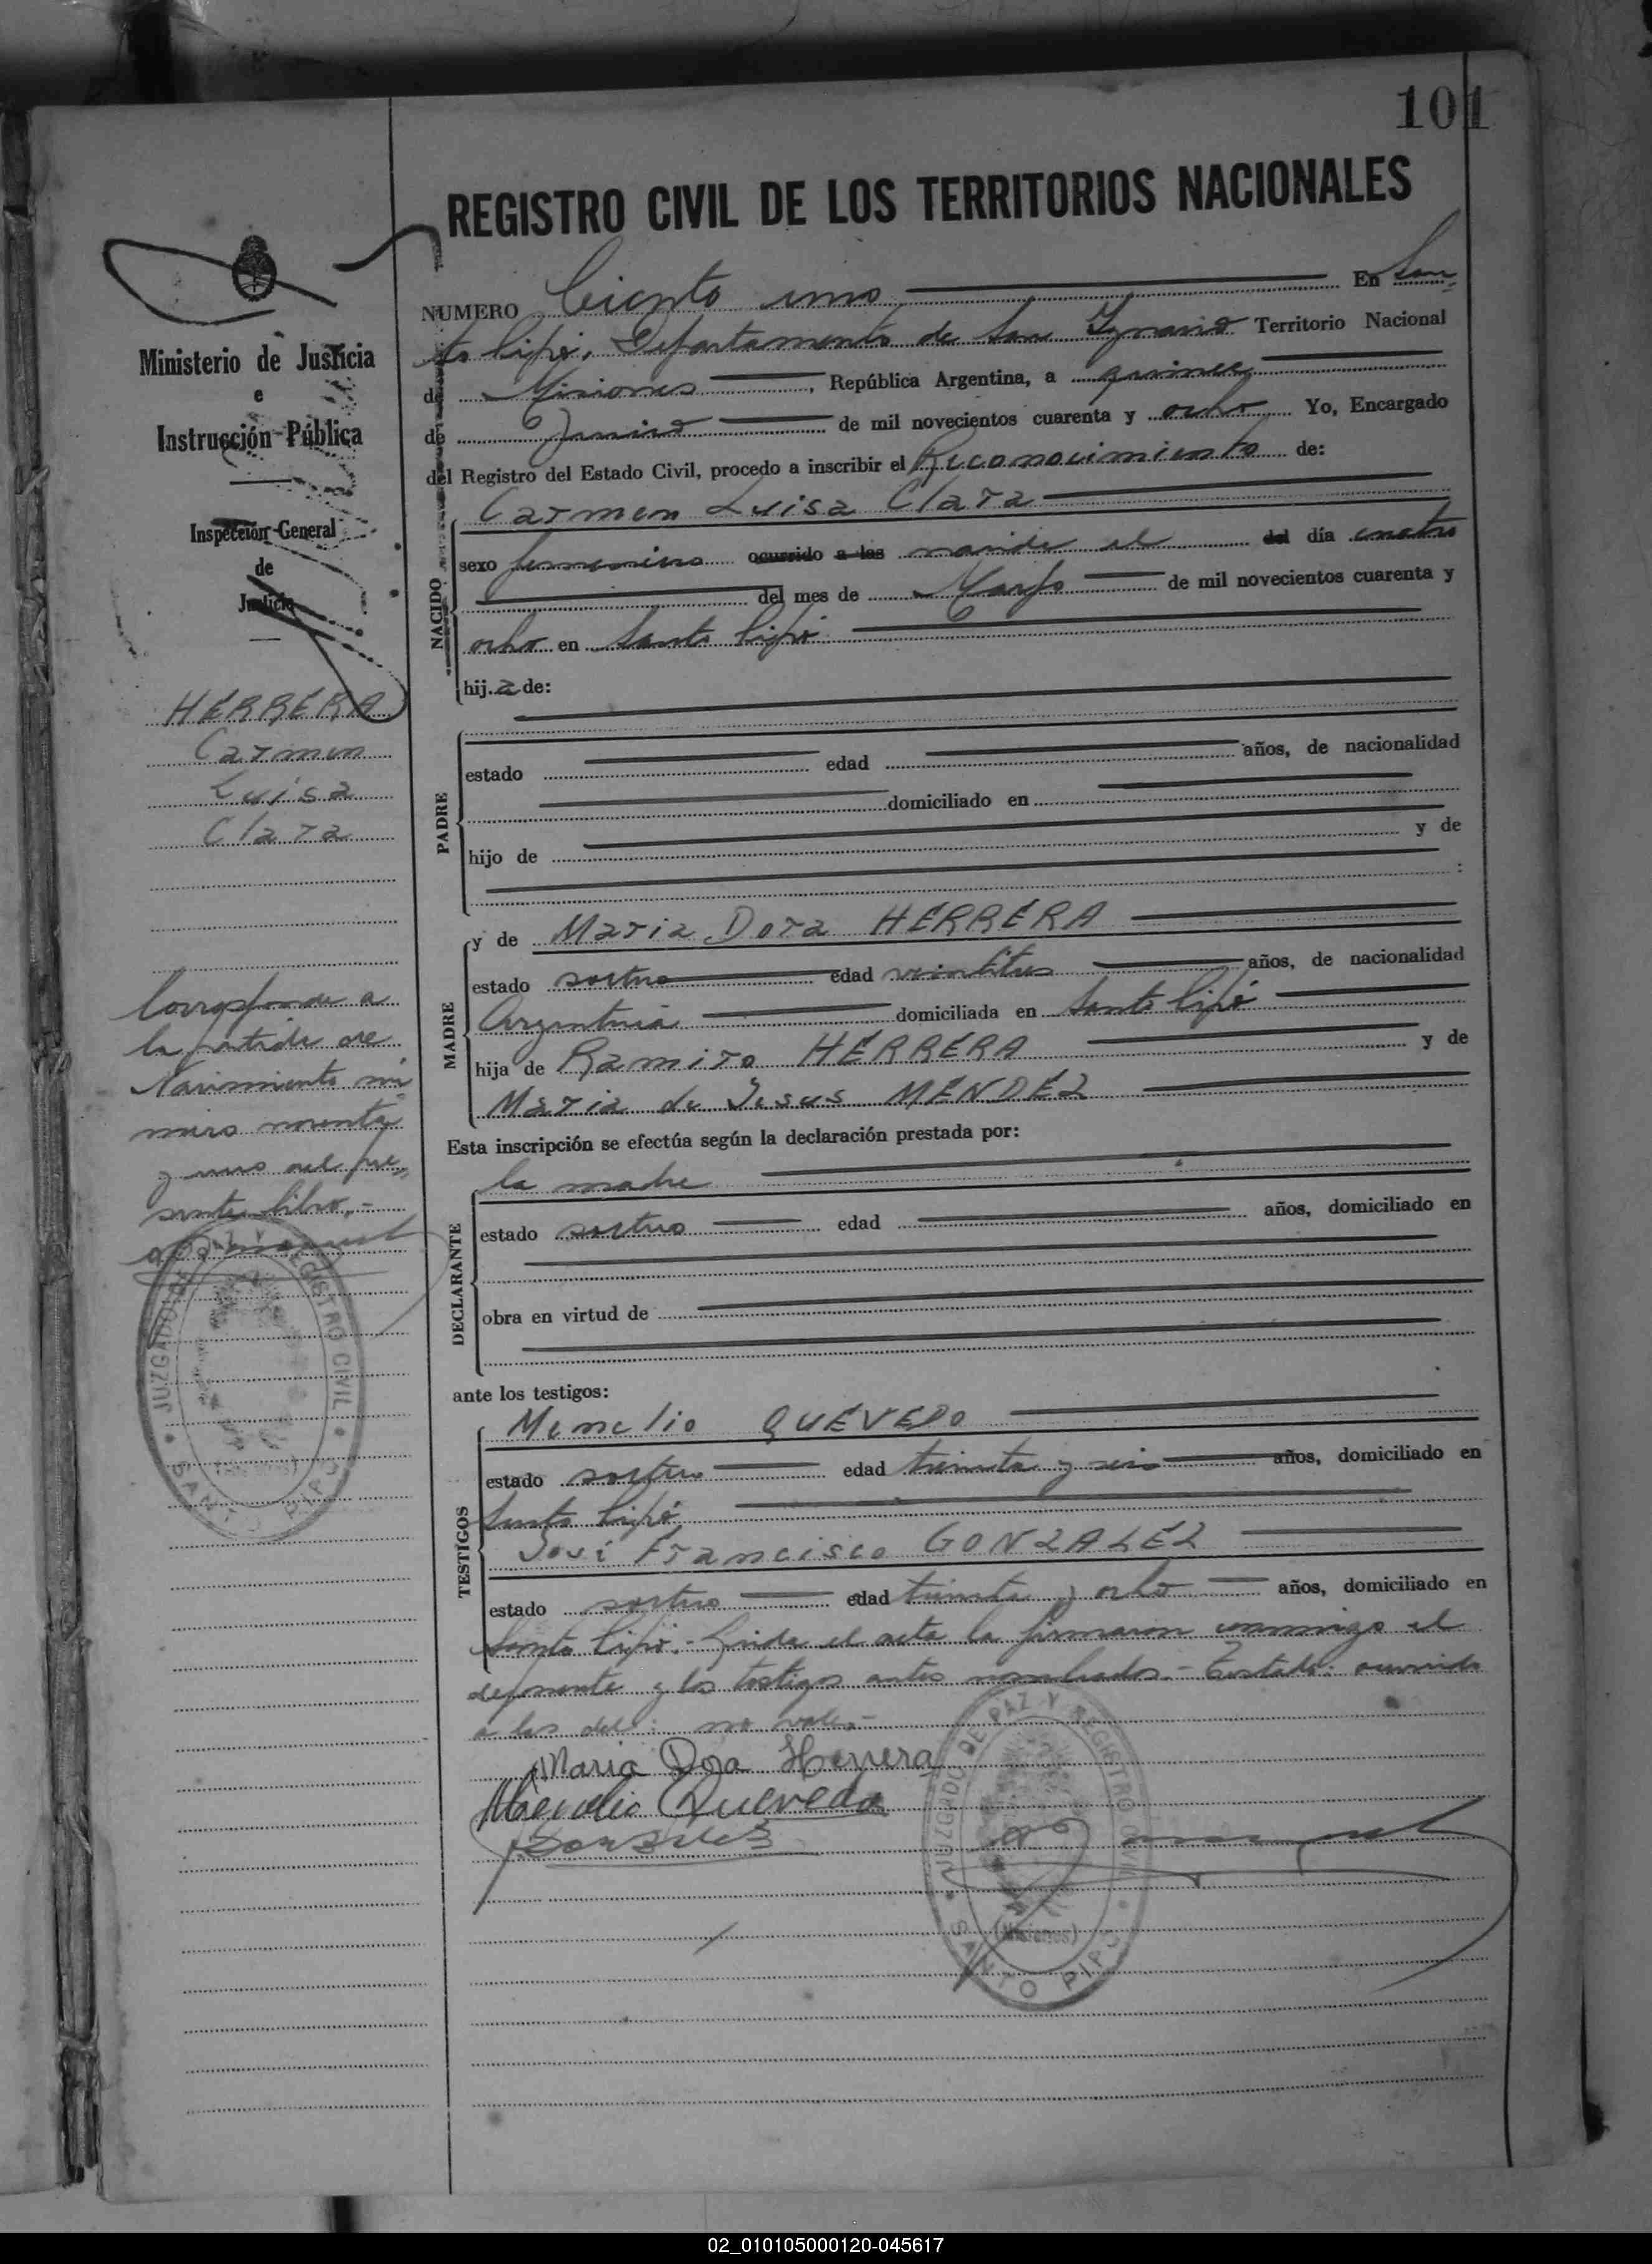 101
REGISTRO CIVIL DE LOS TERRITORIOS NACIONALES
Ministerio de Justicia
e
Instrucción Pública
Inspección General
de
Justicia
HERRERA
Carmen
Luisa
Clara
Corresponde a
la partida de
Nacimiento nú
mero noventa
y uno del pre
sente libro.-
JUZGADO DE PAZ Y REGISTRO CIVIL
SANTO PIPO
NUMERO Ciento uno En San
to Pipó, Departamento de San Ignacio Territorio Nacional
de Misiones, República Argentina, a quince
de Junio de mil novecientos cuarenta y ocho Yo, Encargado
del Registro del Estado Civil, procedo a inscribir el Reconocimiento de:
NACIDO
Carmen Luisa Clara
sexo femenino ocurrido a las nacida el del día cuatro
del mes de Marzo de mil novecientos cuarenta y
ocho en Santo Pipó
hij.a de:
PADRE
estado edad años, de nacionalidad
domiciliado en
hijo de y de
:
MADRE
y de Maria Dora HERRERA
estado soltera edad veintitres años, de nacionalidad
Argentina domiciliada en Santo Pipó
hija de Ramiro HERRERA y de
Maria de Jesus MENDEZ
Esta inscripción se efectúa según la declaración prestada por:
DECLARANTE
la madre
estado soltera edad años, domiciliado en
obra en virtud de
ante los testigos:
TESTIGOS
QUEVEDO
estado soltero edad treinta y seis años, domiciliado en
Santo Pipó
José Francisco GONZALEZ
estado soltero edad treinta y ocho años, domiciliado en
Santo Pipó.- Leida el acta la firmaron conmigo el
deponente y los testigos antes nombrados.- Testado: ocurrido
a las del: no vale.-
Maria Dora Herrera
Quevedo
Gonzalez
JUZGADO DE PAZ Y REGISTRO CIVIL
(Misiones)
SANTO PIPO
02_010105000120-045617